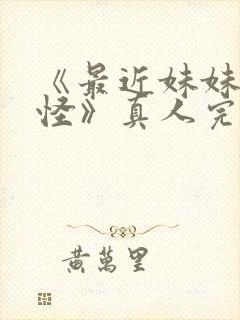 《最近妹妹
怪》真人完
黃萬里